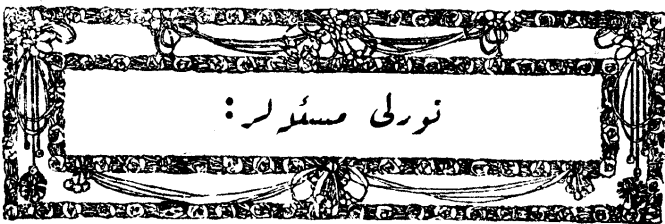 تورلی مسئله‌لر: